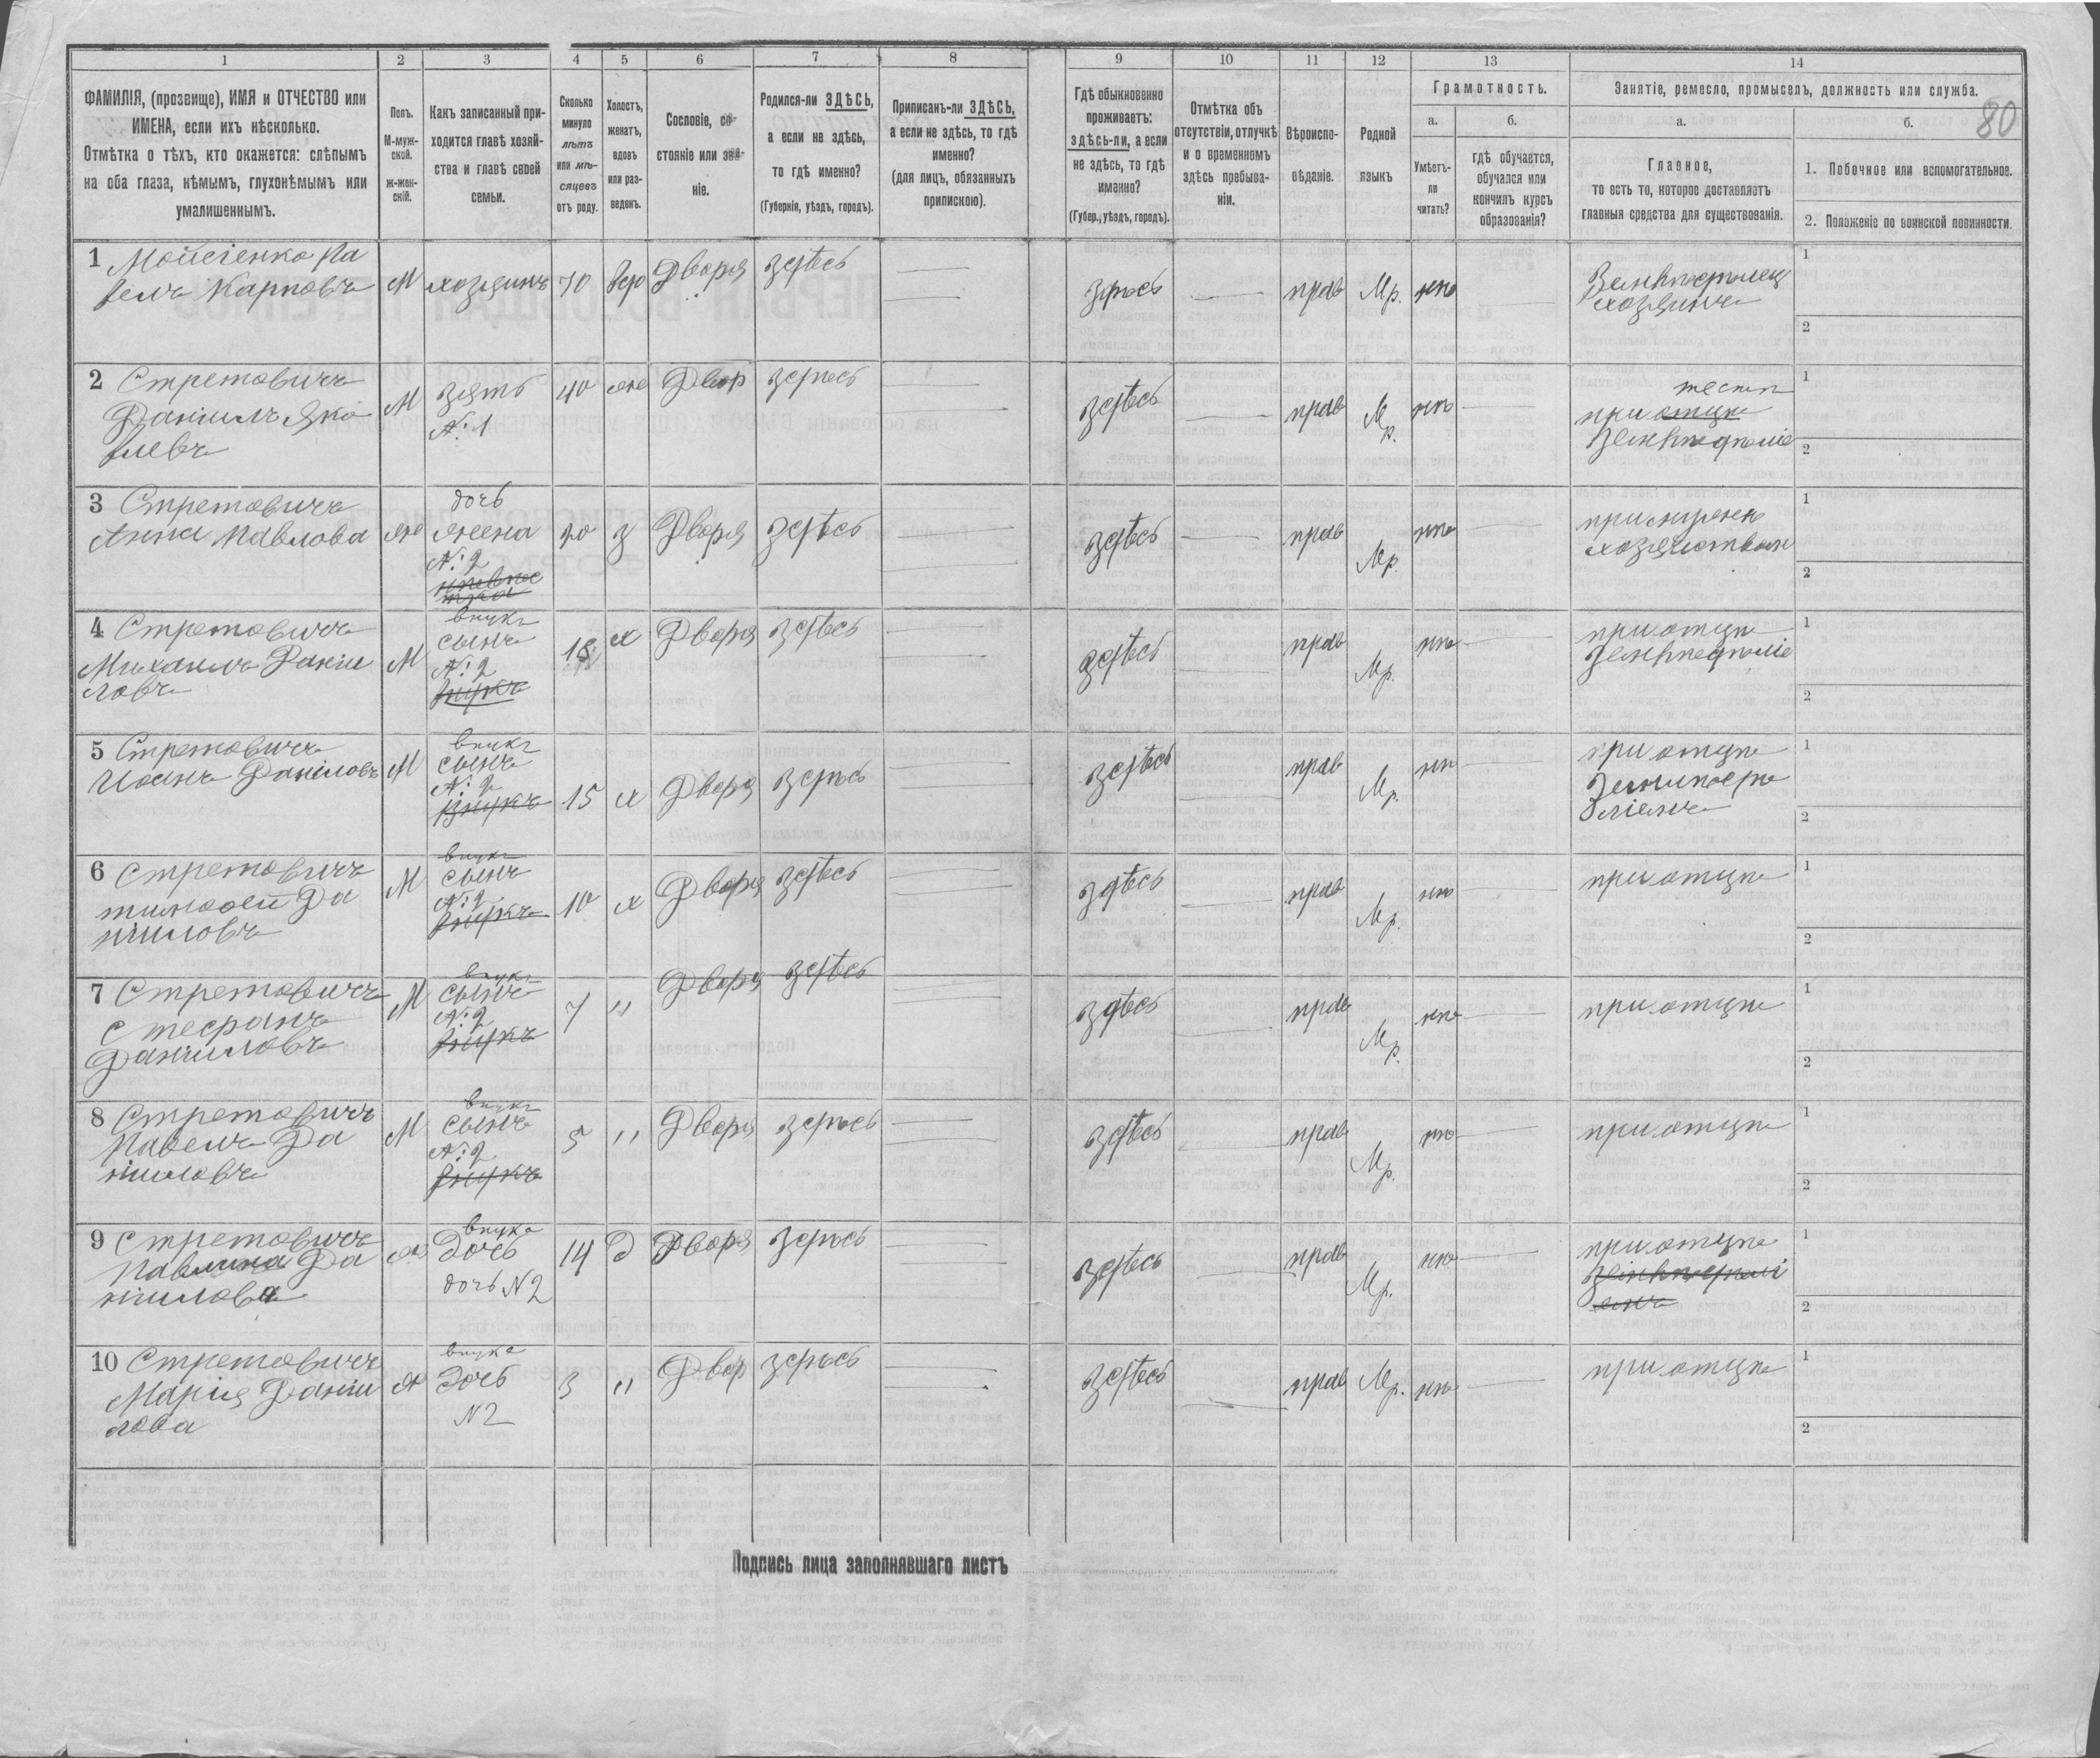 80
1 2 3 4 5 6 7 8 9 10 11 12 13 14
ФАМИЛІЯ, (прозвище), ИМЯ и ОТЧЕСТВО или
ИМЕНА, если ихъ нѣсколько.
Отмѣтка о тѣхъ, кто окажется: слѣпымъ
на оба глаза, нѣмымъ, глухонѣмымъ или
умалишеннымъ.
Полъ.
М-муж-
ской.
ж-жен-
скій.
Какъ записанный при-
ходится главѣ хозяй-
ства и главѣ своей
семьи.
Сколько
минуло
лѣтъ
или мѣ-
сяцевъ
отъ роду.
Холостъ,
женатъ,
вдовъ
или раз-
веденъ.
Сословіе, со-
стояніе или зва-
ніе.
Родился-ли ЗДѢСЬ,
а если не здѣсь,
то гдѣ именно?
(Губернія, уѣздъ, городъ).
Приписанъ-ли ЗДѢСЬ,
а если не здѣсь, то гдѣ
именно?
(для лицъ, обязанныхъ
припискою).
Гдѣ обыкновенно
проживаетъ:
здѣсь-ли, а если
не здѣсь, то гдѣ
именно?
(Губер., уѣздъ, городъ).
Отмѣтка объ
отсутствіи, отлучкѣ
и о временномъ
здѣсь пребыва-
ніи.
Вѣроиспо-
вѣданіе.
Родной
языкъ
Грамотность.
а.
Умѣетъ-
ли
читать?
б.
гдѣ обучается,
обучался или
кончилъ курсъ
образованія?
Занятіе, ремесло, промыселъ, должность или служба.
а.
Главное,
то есть то, которое доставляетъ
главныя средства для существованія.
б.
1. Побочное или вспомогательное.
2. Положеніе по воинской повинности.
1 Мойсіенко Па
велъ Карповъ
М хозяинъ 70 вдо Дворя здѣсь
здѣсь прав Мр. нѣ
хозяинъ
1
2
2 Стретовичъ
Даніилъ Яко
влевъ
М зять
№ 1
40 же Двор здѣсь
здѣсь прав Мр. нѣ
тестѣ
при отцѣ
1
2
3 Стретовичъ
Анна Павлова
же дочь
жена
№ 2
з Дворя здѣсь
здѣсь прав Мр. нѣ
1
2
4 Стретовичъ
Михаилъ Даніи
ловъ
М внукъ
сынъ
№ 2
внукъ
18 х Дворя здѣсь
здѣсь прав Мр. нѣ
при отцѣ
1
2
5 Стретовичъ
Иоанъ Даніловъ
М внукъ
сынъ
№ 2
внукъ
15 х Дворя здѣсь
здѣсь прав Мр. нѣ
при отцѣ
1
2
6 Стретовичъ
тимофей Да
ніиловъ
М внукъ
сынъ
№ 2
внукъ
10 х Дворя здѣсь
здѣсь прав Мр. нѣ
при отцѣ
1
2
7 Стретовичъ
Стефанъ
Даніиловъ
М внукъ
сынъ
№ 2
внукъ
7 " Дворя здѣсь
здѣсь прав Мр. нѣ
при отцѣ
1
2
8 Стретовичъ
Павелъ Да
ніиловъ
М внукъ
сынъ
№ 2
внукъ
5 " Дворя здѣсь
здѣсь прав Мр. нѣ
при отцѣ
1
2
9 Стретовичъ
Павлина Да
ніилова
же внука
Дочь
дочь N2
14 д Дворя здѣсь
здѣсь прав Мр. нѣ
при отцѣ
1
2
10 Стретовичъ
Марія Даніи
лова
ж внука
Дочь
N2
3 " Двор здѣсь
здѣсь прав Мр. нѣ
при отцѣ
1
2
Подпись лица заполнявшаго листъ